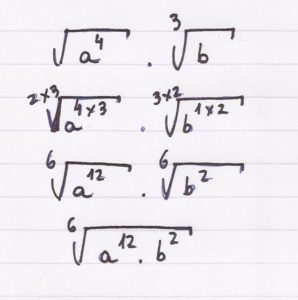 √a⁴ . ³√b
²ˣ³√a⁴ˣ³ . ³ˣ²√b¹ˣ²
⁶√a¹² . ⁶√b²
⁶√a¹² . b²